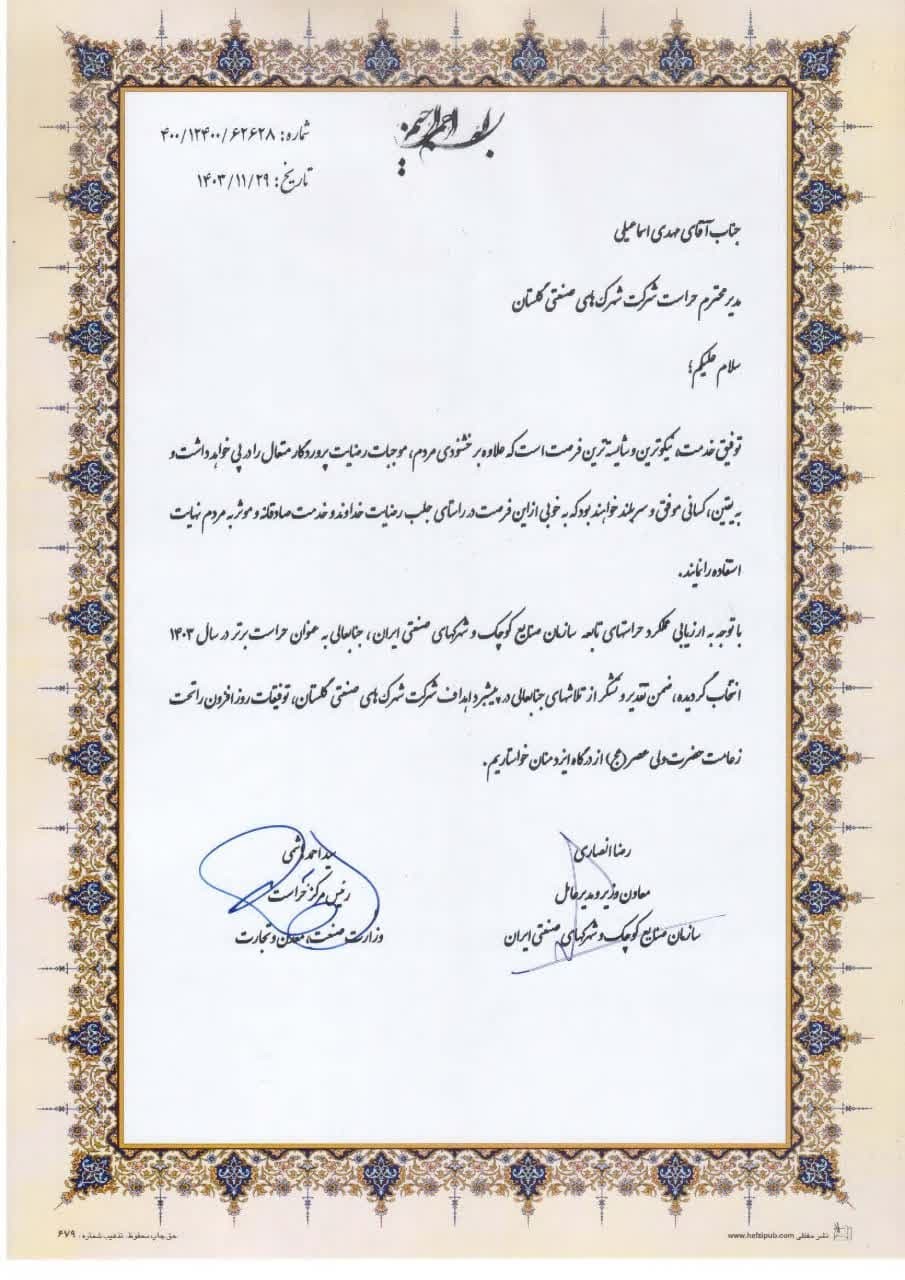 بسم الله الرحمن الرحیم
شماره: ۴۰۰/۱۲۴۰۰/۶۲۶۲۸
تاریخ: ۱۴۰۳/۱۱/۲۹
جناب آقای مهدی اسماعیلی
مدیر محترم حراست شرکت شهرک های صنعتی گلستان
سلام علیکم؛
توفیق خدمت، نیکوترین و شایسته ترین فرصت است که علاوه بر خشنودی مردم، موجبات رضایت پروردگار متعال را در پی خواهد داشت و
به یقین، کسانی موفق و سربلند خواهند بود که به خوبی از این فرصت در راستای جلب رضایت خداوند و خدمت صادقانه و موثر به مردم نهایت
استفاده را نمایند.
با توجه به ارزیابی عملکرد حراستهای تابعه سازمان صنایع کوچک و شهرکهای صنعتی ایران، جنابعالی به عنوان حراست برتر در سال ۱۴۰۳
انتخاب گردیده، ضمن تقدیر و تشکر از تلاشهای جنابعالی در پیشبرد اهداف شرکت شهرک های صنعتی گلستان، توفیقات روز افزون را تحت
زعامت حضرت ولی عصر (عج) از درگاه ایزد منان خواستاریم.
رضا انصاری
معاون وزیر و مدیرعامل
سازمان صنایع کوچک و شهرکهای صنعتی ایران
سید احمد هاشمی
رئیس مرکز حراست
وزارت صنعت، معدن و تجارت
نشر حفظی www.hefzipub.com
حق چاپ محفوظ. تذهیب شماره: ۶۷۹